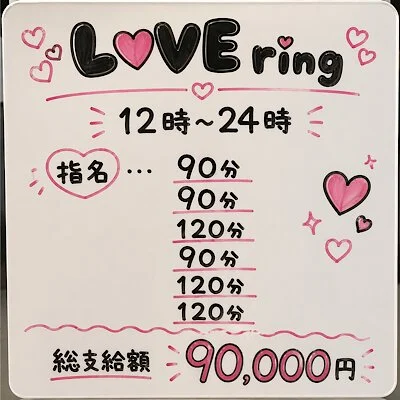 LOVE ring
12時～24時
指名… 90分
90分
120分
90分
120分
120分
総支給額 90,000円